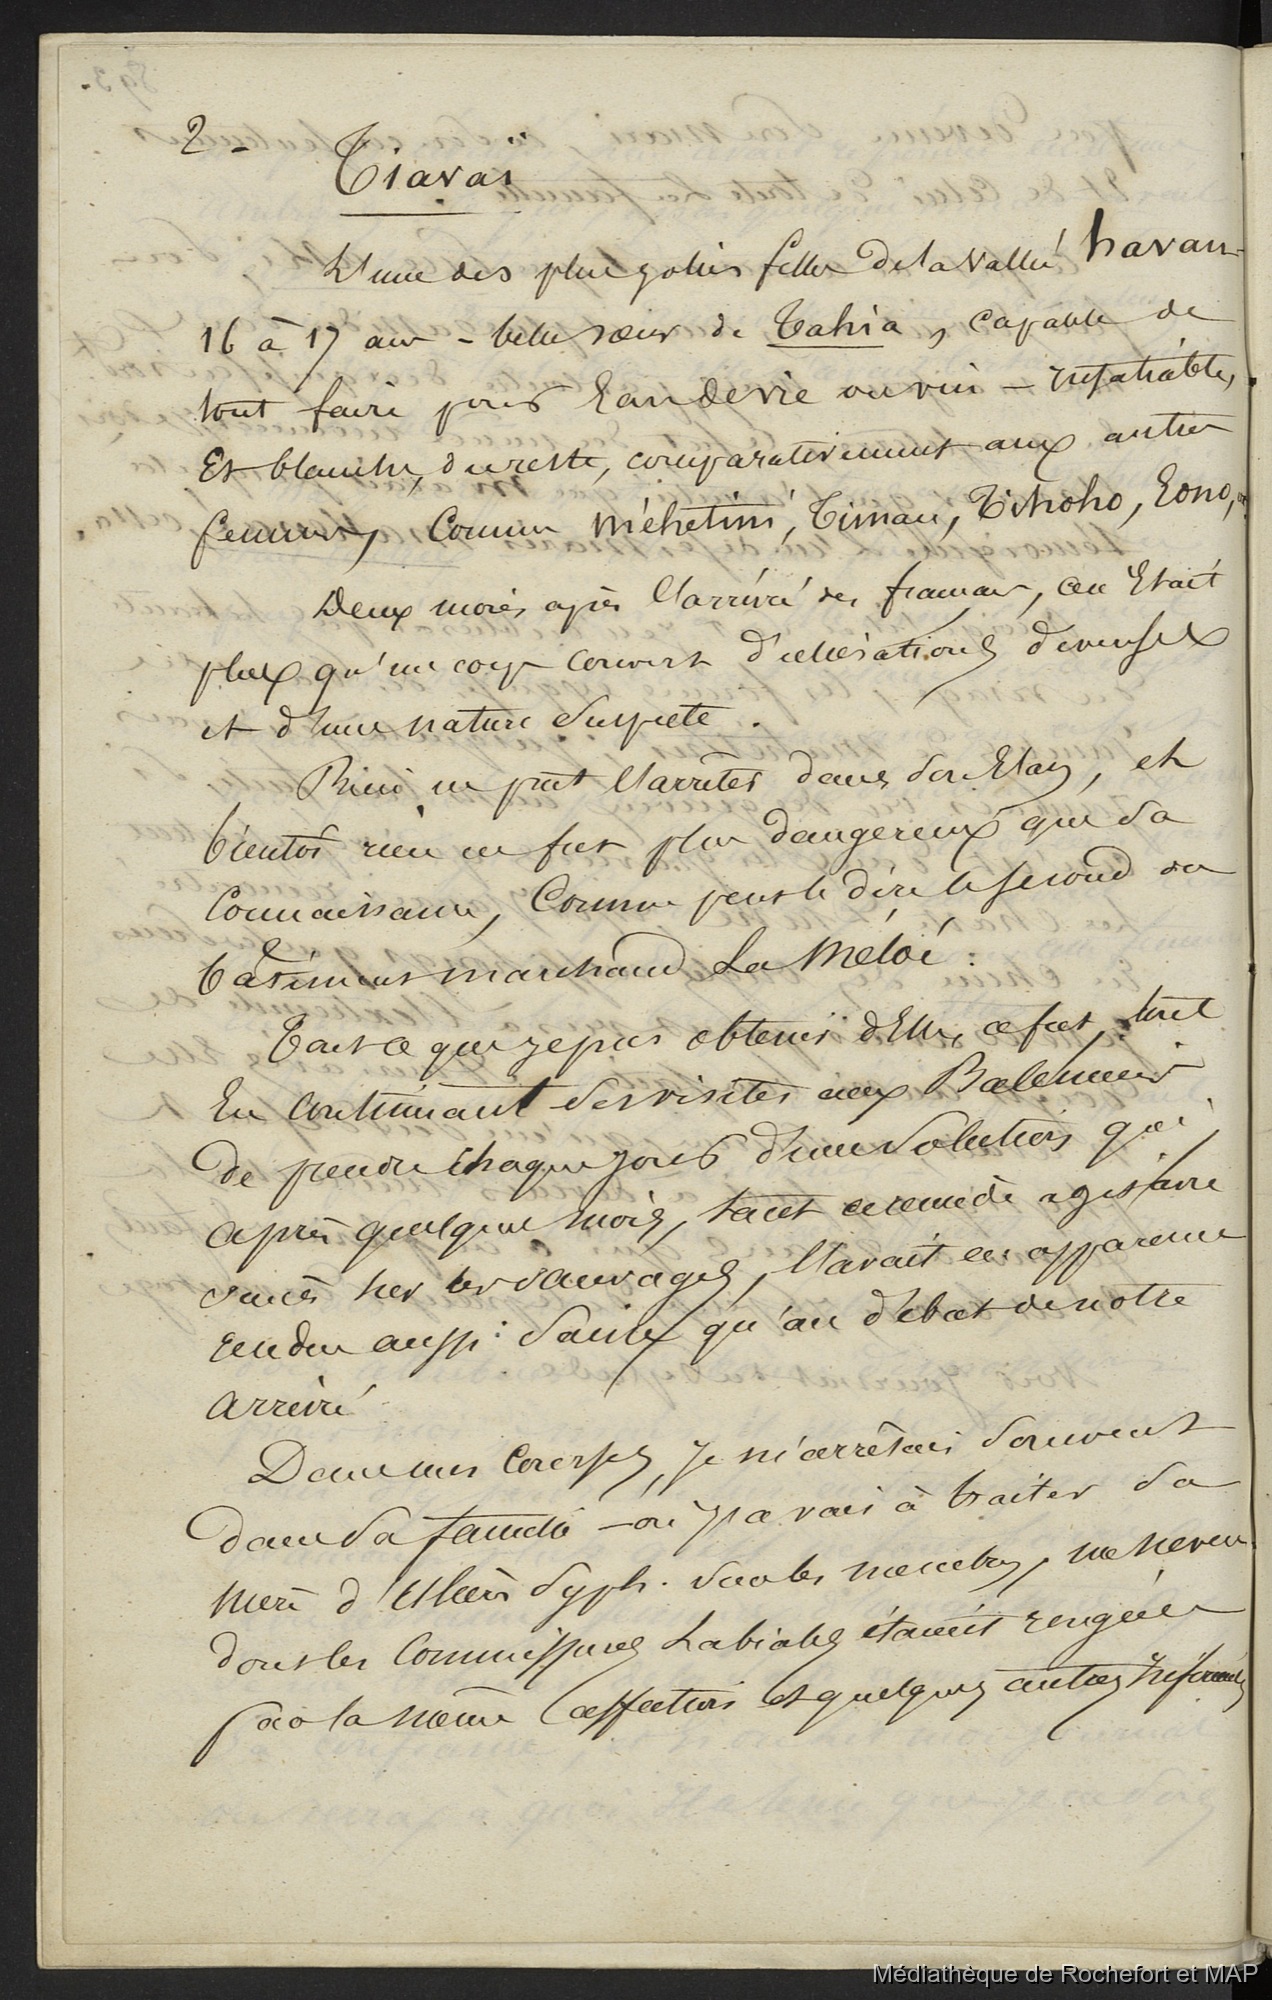 2 -
Tiavaï
L'une des plus jolies filles de la vallée havau -
16 à 17 ans - belle sœur de Tahia, capable de
tout faire pour Eau de vie ou vin - insatiable,
Est blanche, du reste, comparativement aux autres
femmes, Comme Méhétini, Timau, Titihoho, Eono,
Deux mois après l'arrivée des français, ce n'Etait
plus qu'un corps couvert d'ulcérations diverses
et d'une nature suspecte.
Rien ne put l'arrêter dans son Elan, et
bientôt rien ne fut plus dangereux que sa
Connaissance, Comme peut le dire le second du
bâtiment marchand La Méloé.
Tout ce que je pus obtenir d'Elle, ce fut, tout
En Continuant ses visites aux Baleiniers
de prendre chaque jour d'une solution qui,
après quelques mois, tant ce remède agit avec
succès sur les sauvages, l'avait en apparence
rendue aussi saine qu'au début de notre
arrivée
Dans mes Courses, Je m'arrêtais souvent
dans sa famille - où j'avais à traiter sa
mère d'Ulcères Syph. sur les membres, un neveu
dont les Commissures Labiales étaient rongées
par la même affection et quelques autres